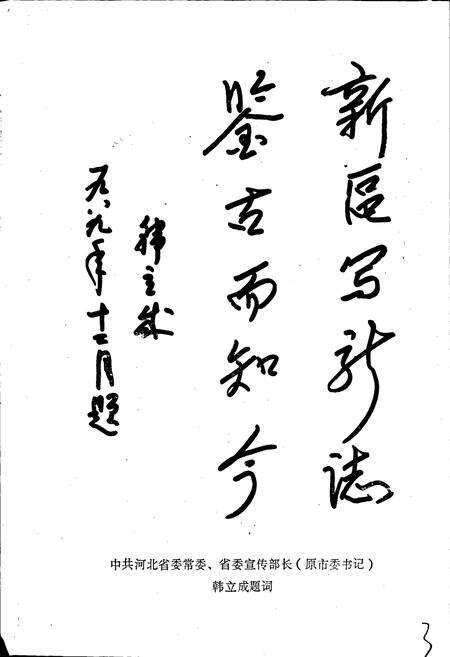 新區写新誌
鉴古而知今
韩立成
一九八九年十二月题
中共河北省委常委、省委宣传部长(原市委书记)
韩立成题词
3